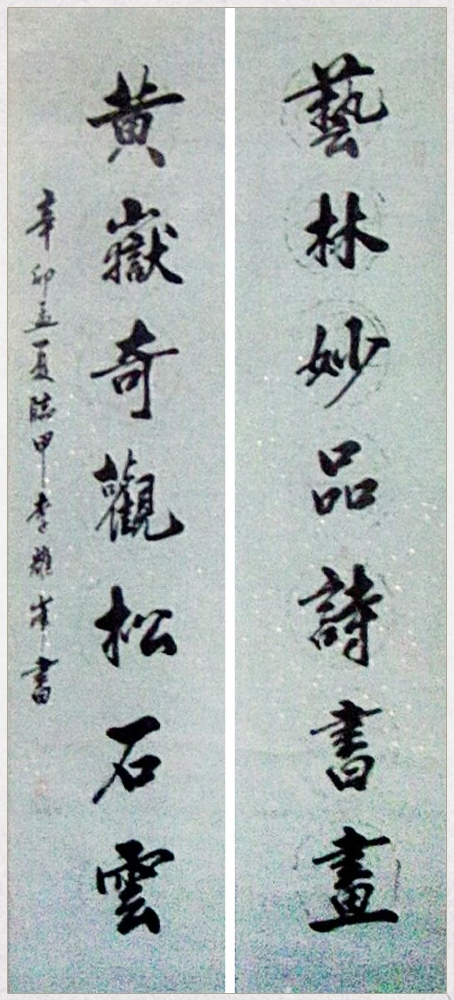 藝林妙品詩書畫
黃嶽奇觀松石雲
辛卯孟夏臨甲李雄峯書